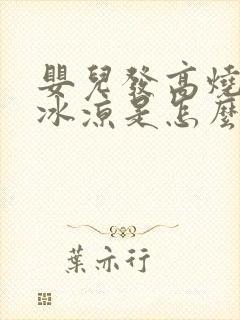 嬰兒發高燒
冰涼是怎麼
葉亦行